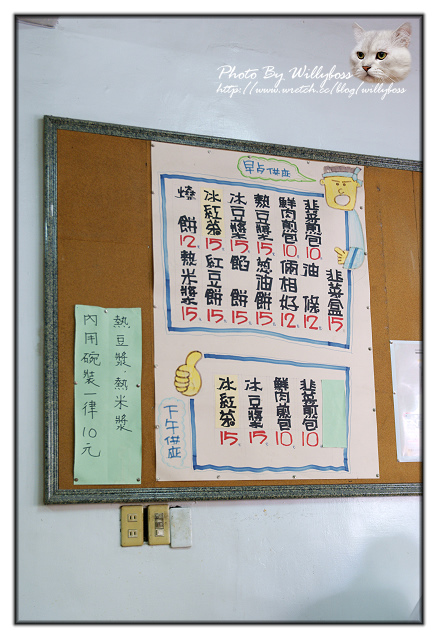 Photo By Willyboss
http://www.wretch.cc/blog/willyboss
早点供应
韭菜煎包10.
鮮肉煎包10.
熱豆漿15.
冰豆漿15.
冰紅茶15.
燒餅12.
韭菜盒15
油條12.
倆相好12.
葱油餅15.
餡餅15.
紅豆餅15.
熱米漿15.
下午供应
韭菜煎包10.
鮮肉煎包10.
冰豆漿15.
冰紅茶15.
熱豆漿.熱米漿
內用碗裝一律10元